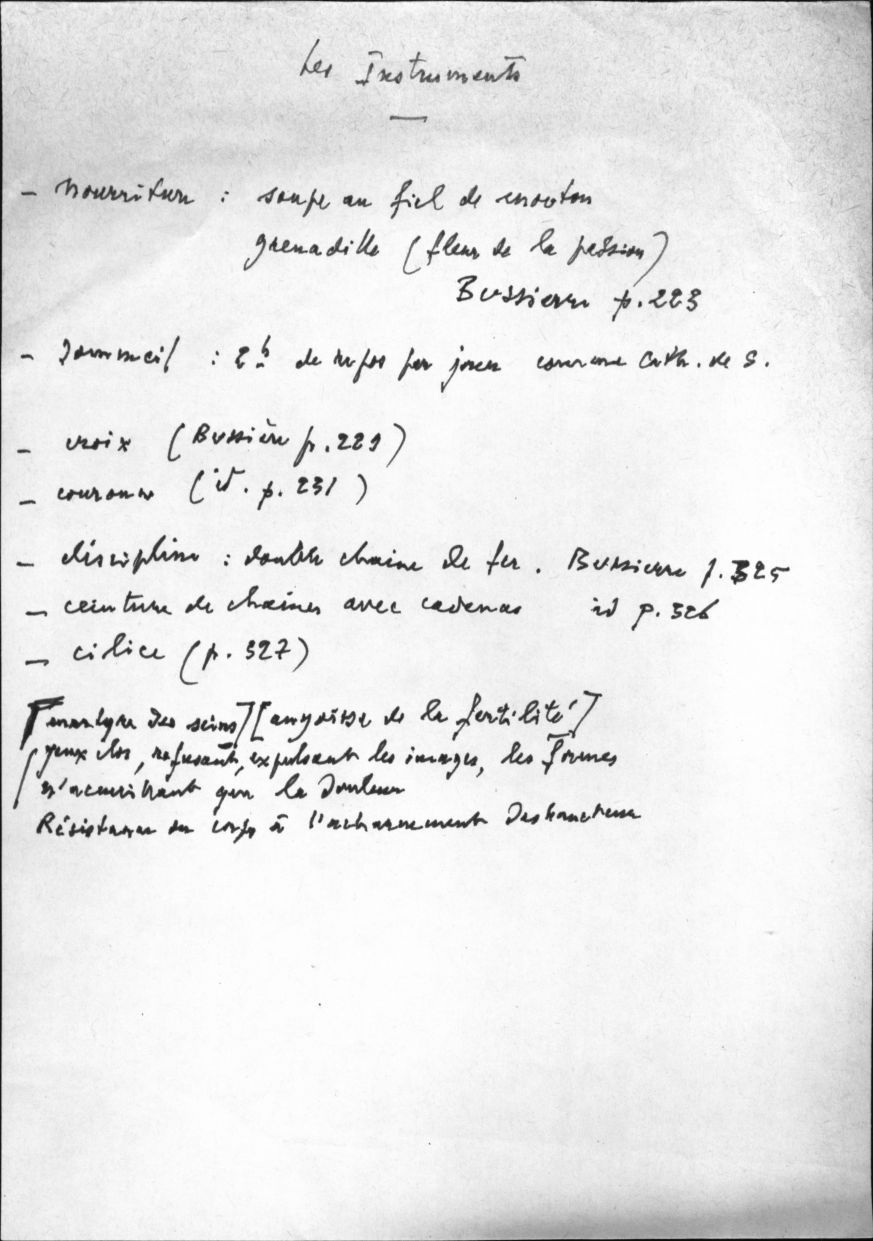 Les Instruments
- nourriture : soupe au fiel de mouton
grenadille (fleur de la passion)
Bussierre p. 223
- Sommeil : 2h de repos par jour comme Cath. de S.
- croix (Bussière p. 229)
- couronne (id. p. 231)
- discipline : double chaine de fer. Bussierre p. 325
- ceinture de chaines avec cadenas id p. 326
- cilice (p. 327)
[martyre des seins] [angoisse de la fertilité]
yeux clos, refusant, expulsant les images, les formes
n'accueillant que la douleur
Résistance du corps à l'acharnement destructeur